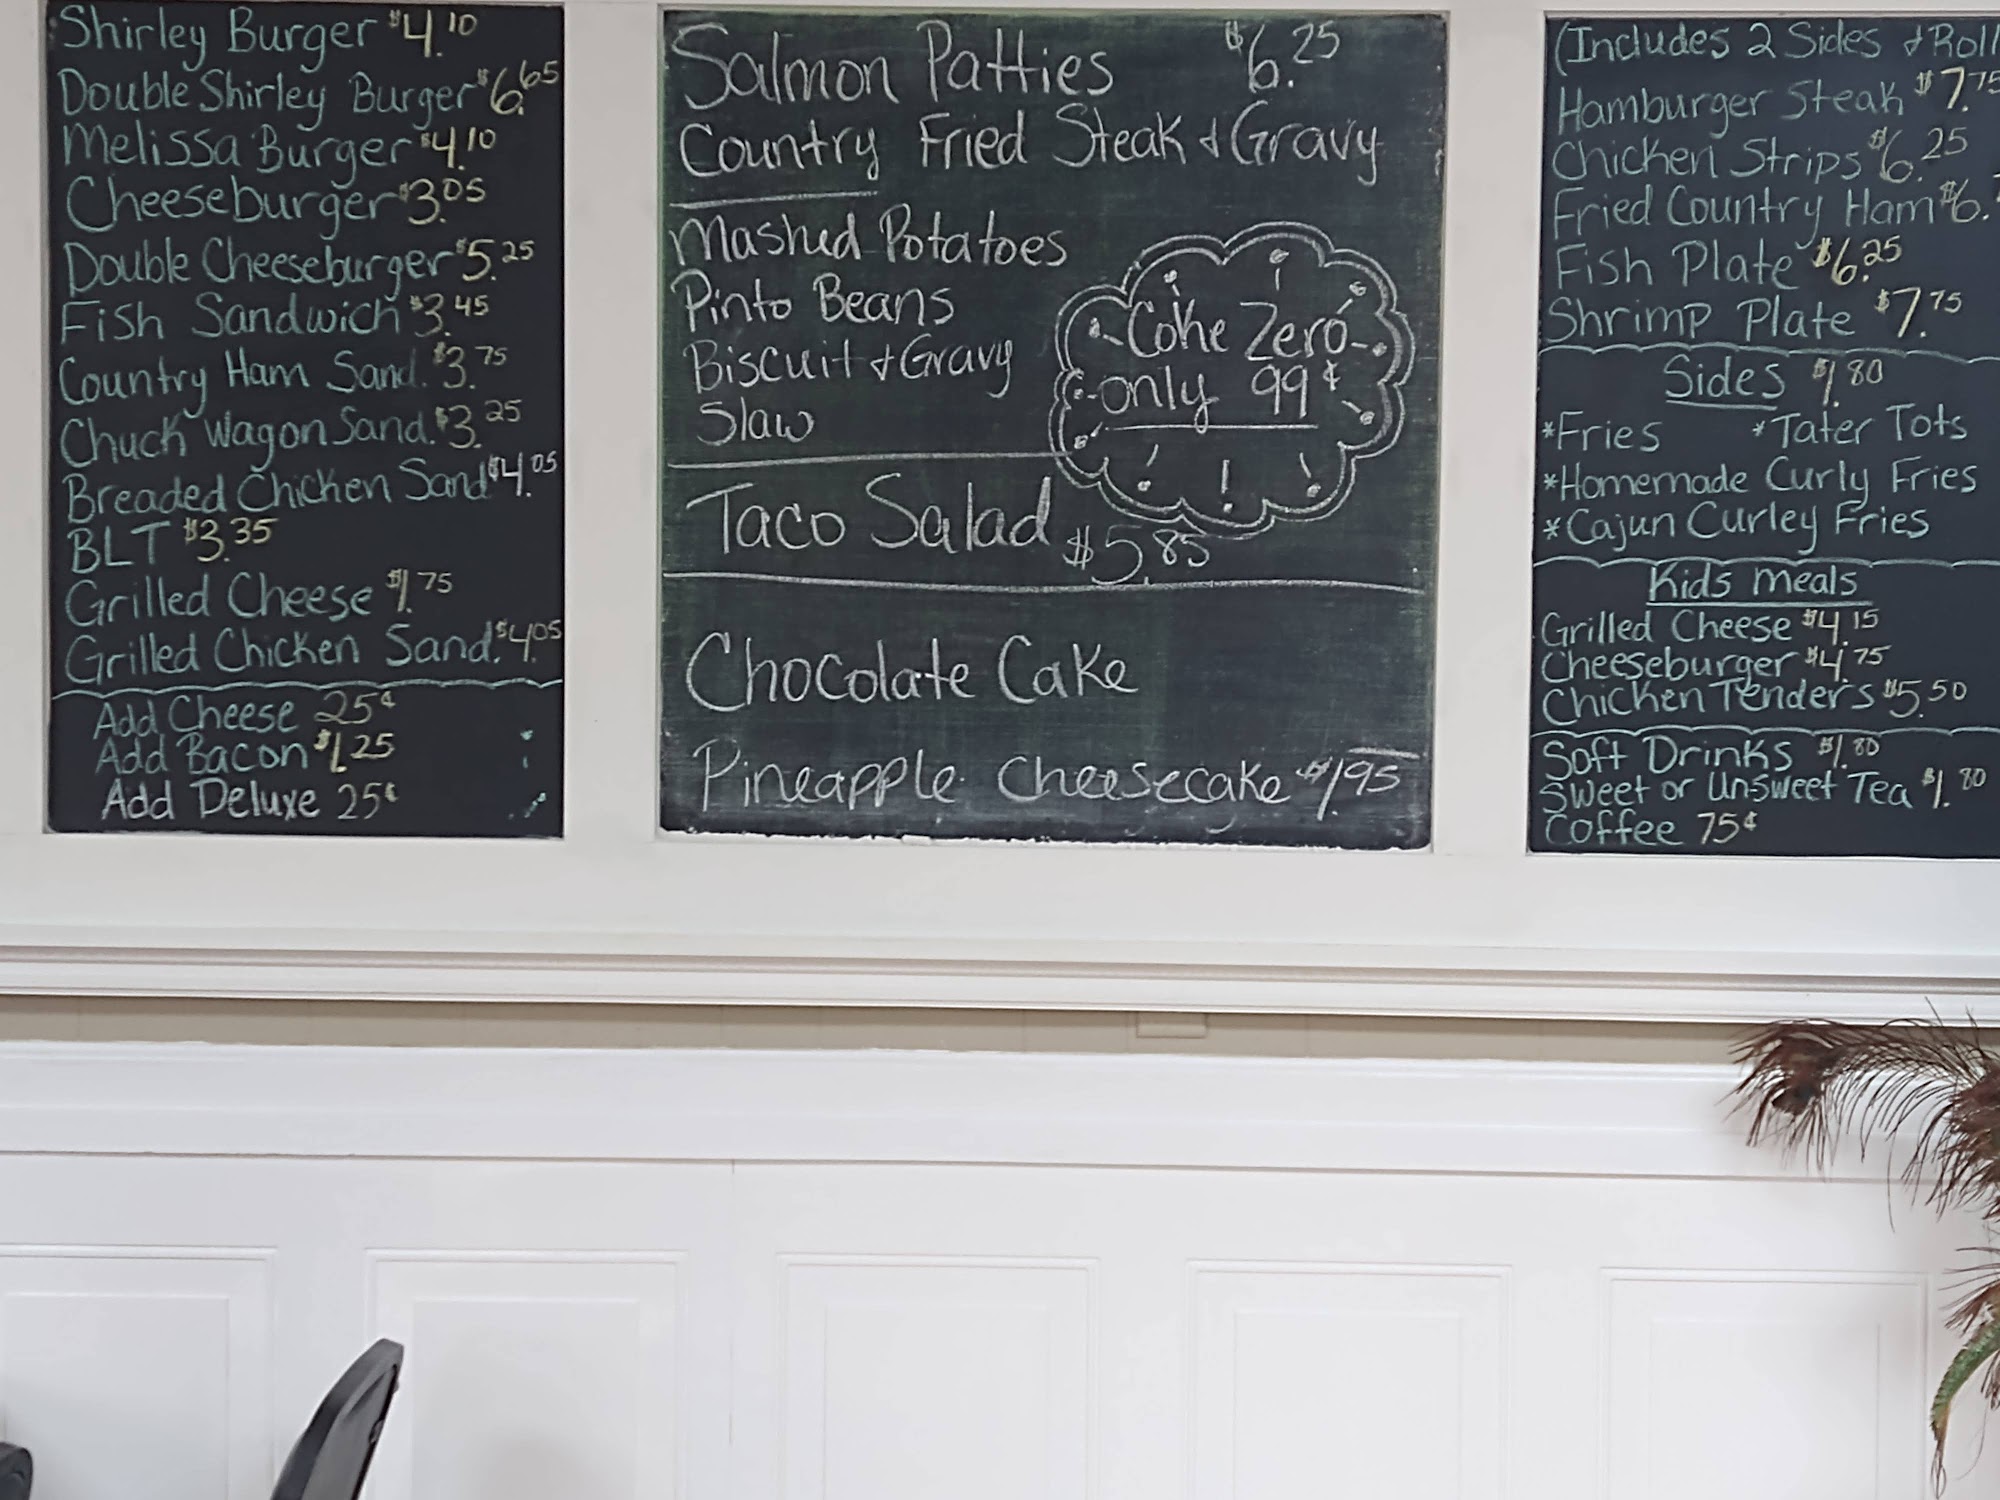 Shirley Burger $4.10
Double Shirley Burger $6.65
Melissa Burger $4.10
Cheeseburger $3.05
Double Cheeseburger $5.25
Fish Sandwich $3.45
Country Ham Sand. $3.75
Chuck Wagon Sand. $3.25
Breaded Chicken Sand $4.05
BLT $3.35
Grilled Cheese $1.75
Grilled Chicken Sand. $4.05
Add Cheese 25¢
Add Bacon $1.25
Add Deluxe 25¢
Salmon Patties $6.25
Country Fried Steak & Gravy
Mashed Potatoes
Pinto Beans
Biscuit & Gravy
Slaw
Coke Zero
only 99¢
!
Taco Salad $5.85
Chocolate Cake
Pineapple Cheesecake $1.95
(Includes 2 Sides & Roll
Hamburger Steak $7.75
Chicken Strips $6.25
Fried Country Ham $6.
Fish Plate $6.25
Shrimp Plate $7.75
Sides $1.80
*Fries *Tater Tots
*Homemade Curly Fries
*Cajun Curley Fries
Kids Meals
Grilled Cheese $4.15
Cheeseburger $4.75
Chicken Tenders $5.50
Soft Drinks $1.80
Sweet or UnSweet Tea $1.80
Coffee 75¢